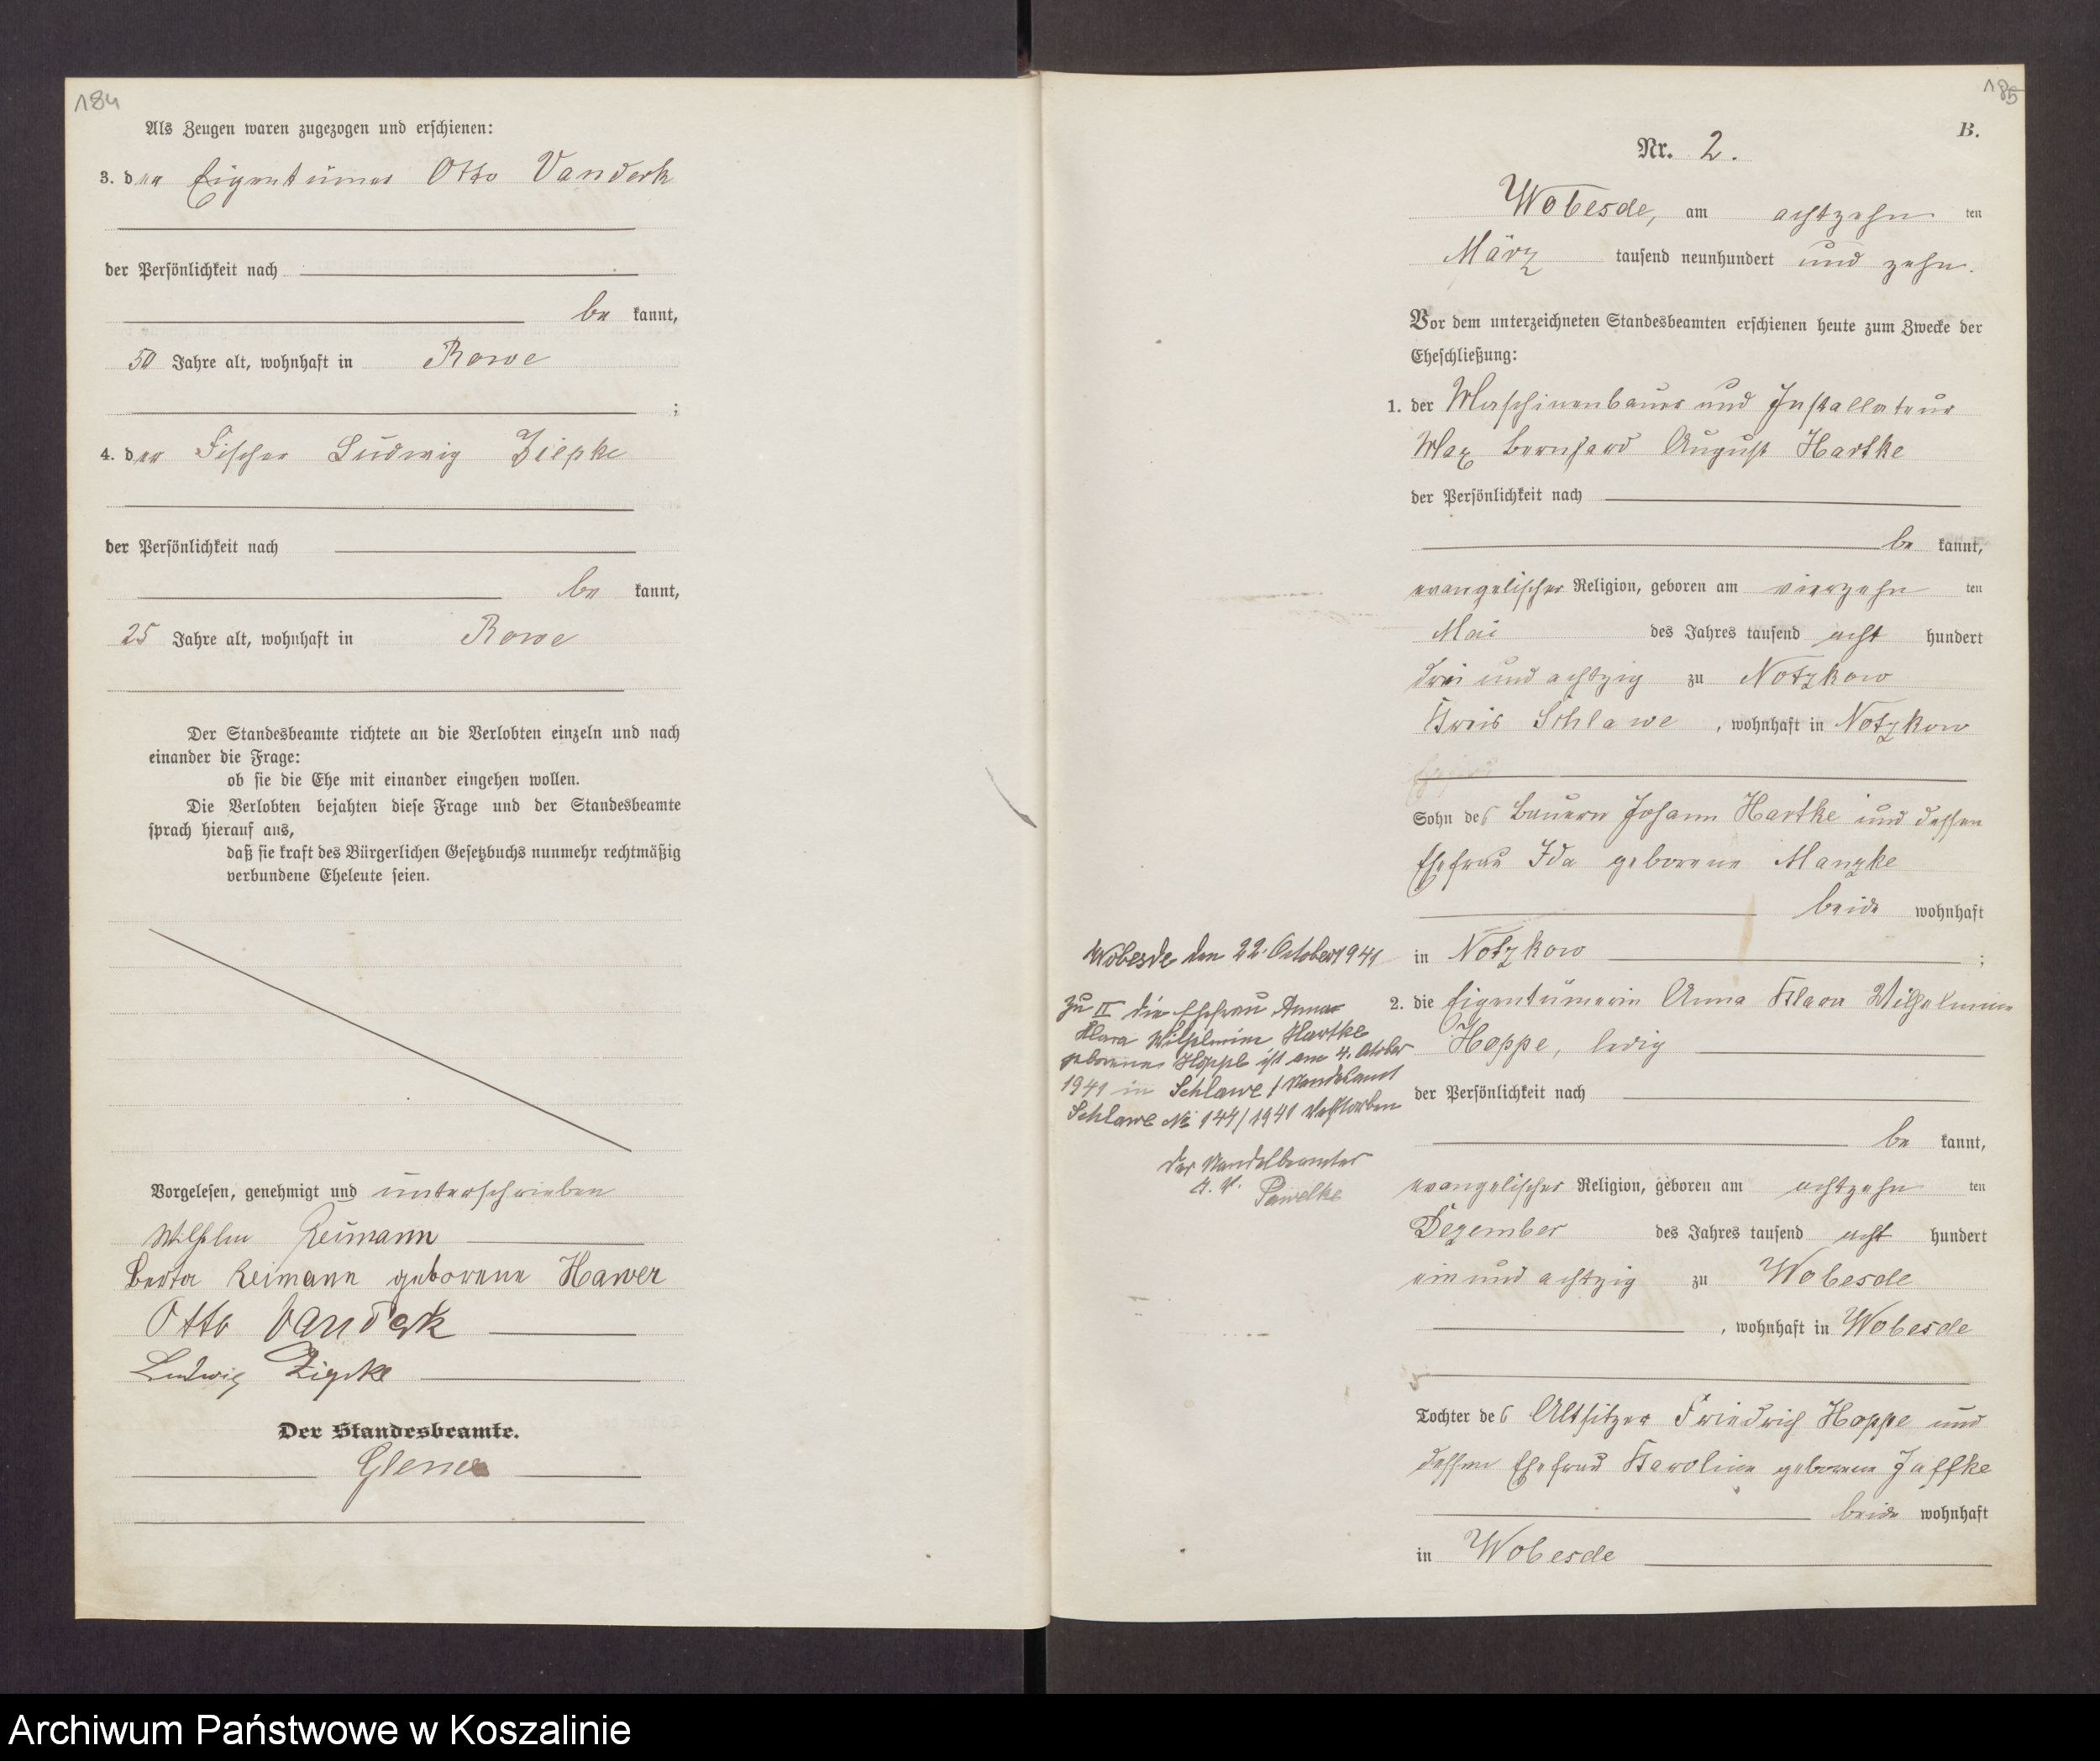 184
Als Zeugen waren zugezogen und erschienen:
3. der Eigentümer Otto Vanderk
der Persönlichkeit nach
be kannt,
50 Jahre alt, wohnhaft in Rowe
;
4. der Fischer Ludwig Ziepke
der Persönlichkeit nach
be kannt,
25 Jahre alt, wohnhaft in Rowe
Der Standesbeamte richtete an die Verlobten einzeln und nach
einander die Frage:
ob sie die Ehe mit einander eingehen wollen.
Die Verlobten bejahten diese Frage und der Standesbeamte
sprach hierauf aus,
daß sie kraft des Bürgerlichen Gesetzbuchs nunmehr rechtmäßig
verbundene Eheleute seien.
Vorgelesen, genehmigt und unterschrieben
Wilhelm Reimann
Berta Reimann geborene Hawer
Otto Vanderk
Ludwig Zipke
Der Standesbeamte.
185
B.
Nr. 2.
Wobesde, am achtzehn ten
März tausend neunhundert und zehn.
Vor dem unterzeichneten Standesbeamten erschienen heute zum Zwecke der
Eheschließung:
1. der Maschinenbauer und Installateur
Max Bernhard August Hartke
der Persönlichkeit nach
be kannt,
evangelischer Religion, geboren am vierzehn ten
Mai des Jahres tausend acht hundert
drei und achtzig zu Notzkow
Kreis Schlawe, wohnhaft in Notzkow
Sohn des Bauern Johann Hartke und dessen
Ehefrau Ida geborene Manzke
beide wohnhaft
in Notzkow ;
2. die Eigentümerin Anna Klara Wilhelmine
Hoppe, ledig
der Persönlichkeit nach
be kannt,
evangelischer Religion, geboren am achtzehn ten
Dezember des Jahres tausend acht hundert
ein und achtzig zu Wobesde
, wohnhaft in Wobesde
Tochter des Altsitzer Friedrich Hoppe und
dessen Ehefrau Karoline geborene Jaffke
beide wohnhaft
in Wobesde
Wobesde den 22. October 1941
Zu II die Ehefrau Anna
Klara Wilhelmine Hartke
geborene Hoppe ist am 4. Oktober
1941 in Schlawe / Standesamt
Schlawe № 144/1941 verstorben
Der Standesbeamte
J. V. Pawelke
Archiwum Państwowe w Koszalinie